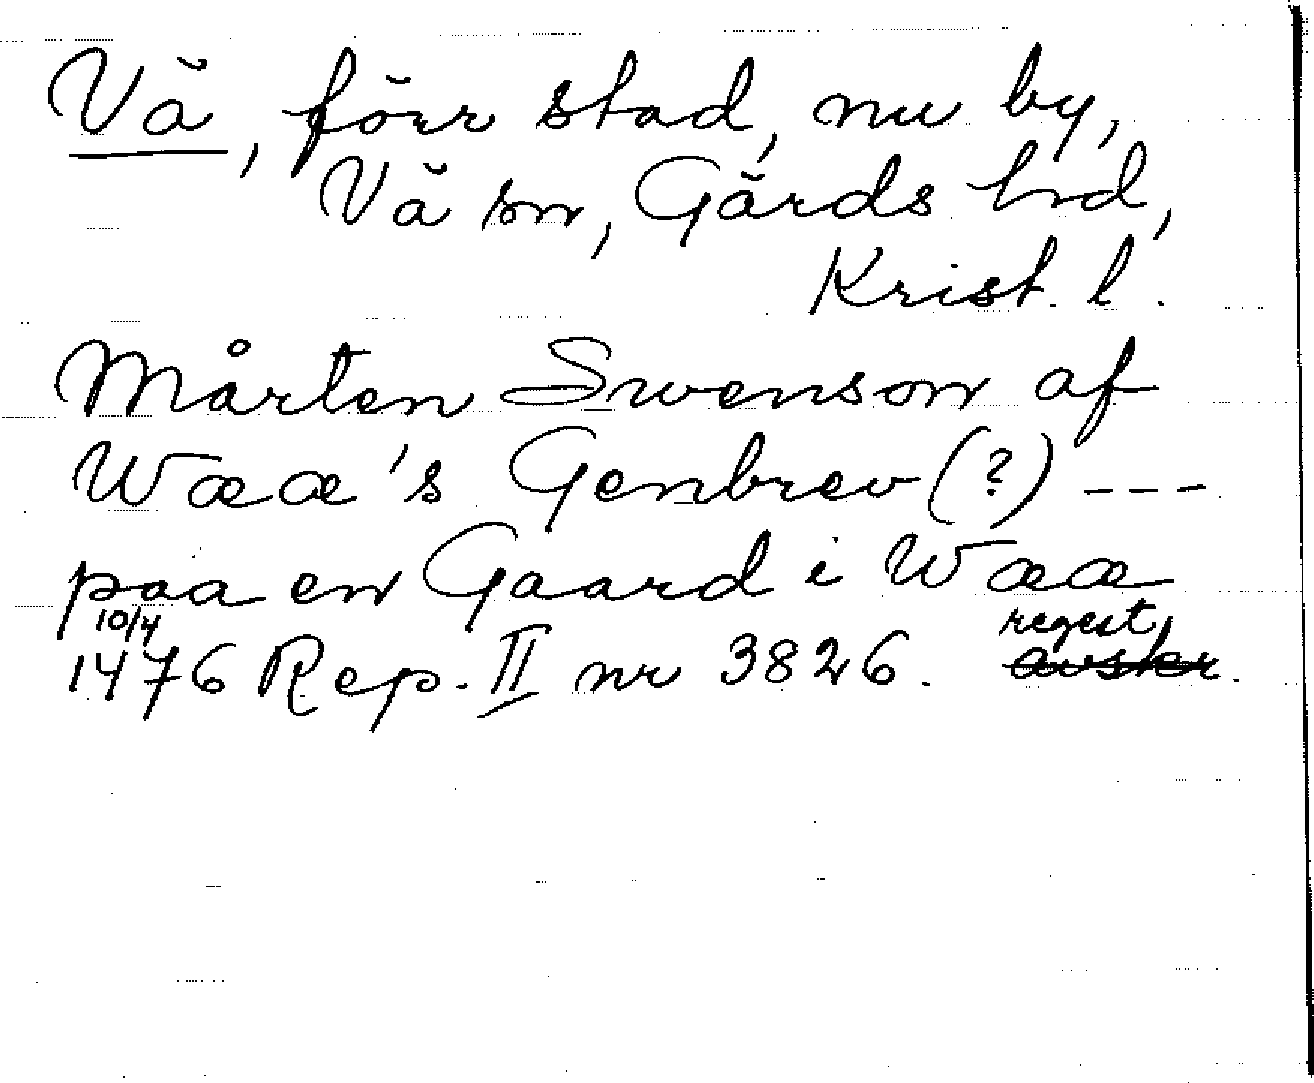 Vä, förr stad, nu by,
Vä sn, Gärds hd,
Krist. l.
Mårten Swenson af
Wææ's Genbrev (?) ---
paa en Gaard i Wææ
10/4 regest,
1476 Rep. II nr 3826. avskr.